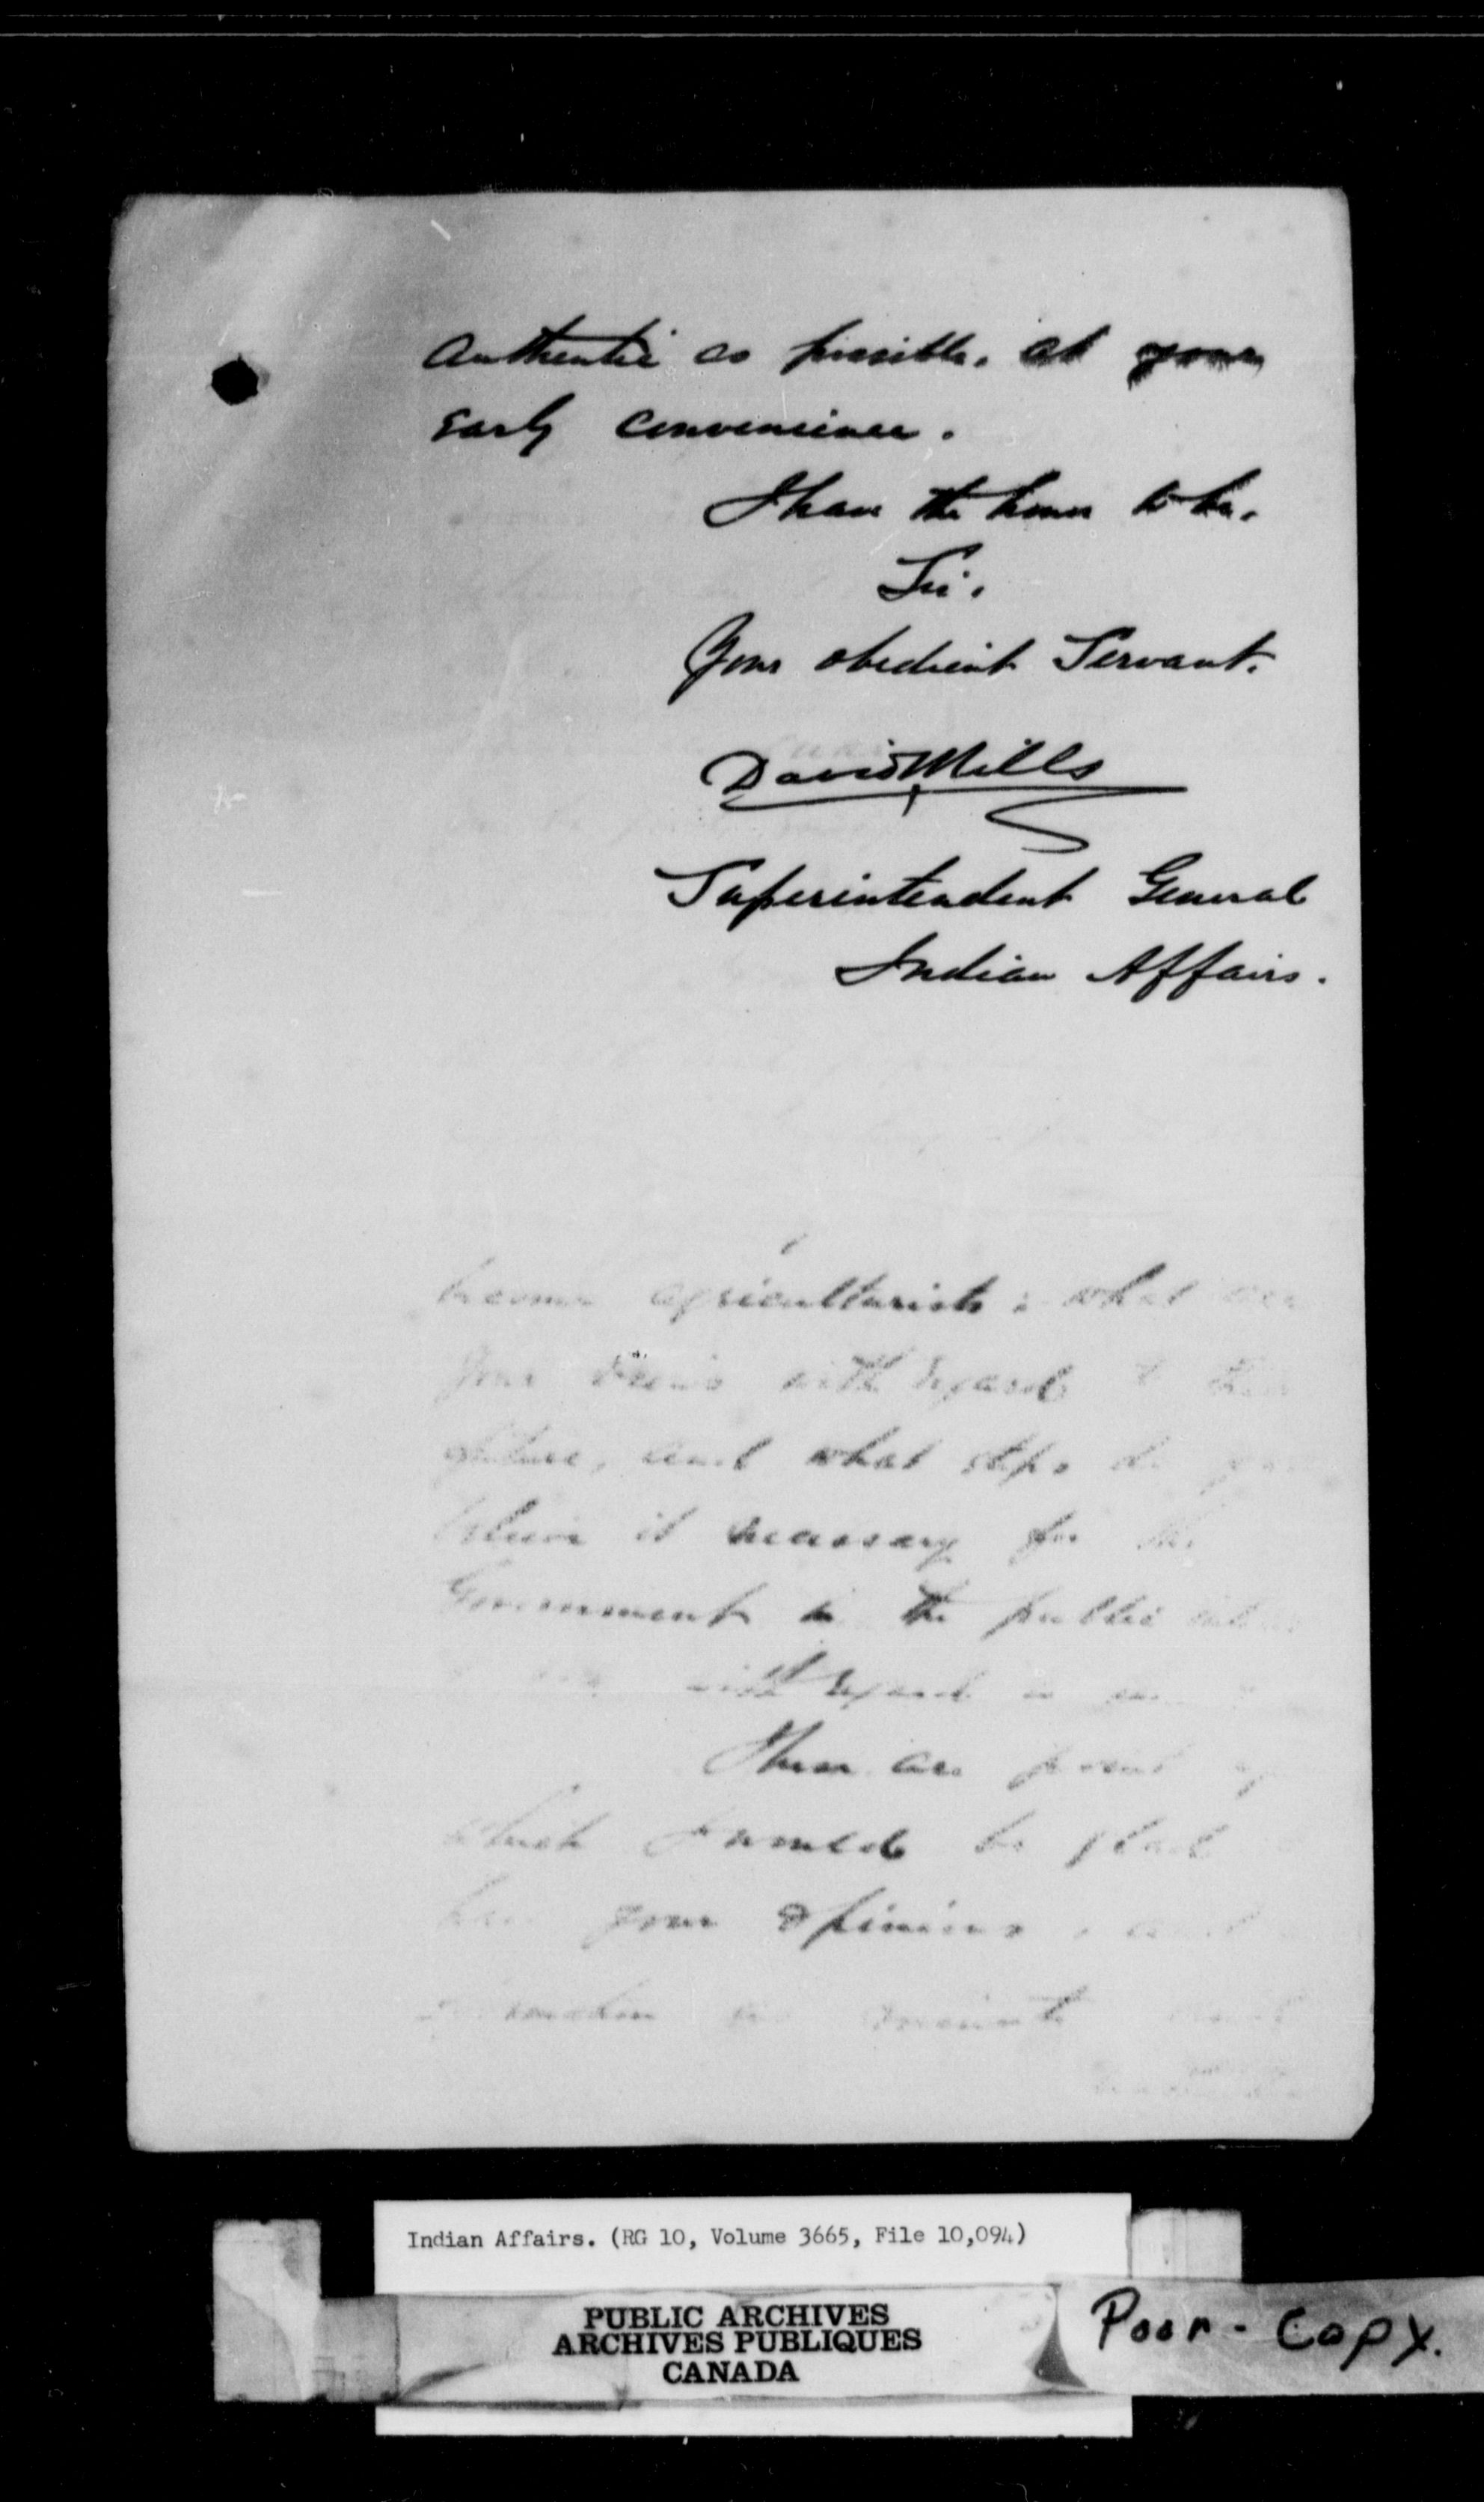 Authentic as possible, at your
Early Convenience.
I have the honor to be,
Sir,
Your obedient Servant.
David Mills
Superintendent General
Indian Affairs.
become agriculturists; what are
your views with regard to their
future, and what steps do you
believe it necessary for the
Government in the public
with regard
These are
which I would be glad
your opinions
Indian Affairs. (RG 10, Volume 3665, File 10,094)
PUBLIC ARCHIVES
ARCHIVES PUBLIQUES
CANADA
Poor-Copy.